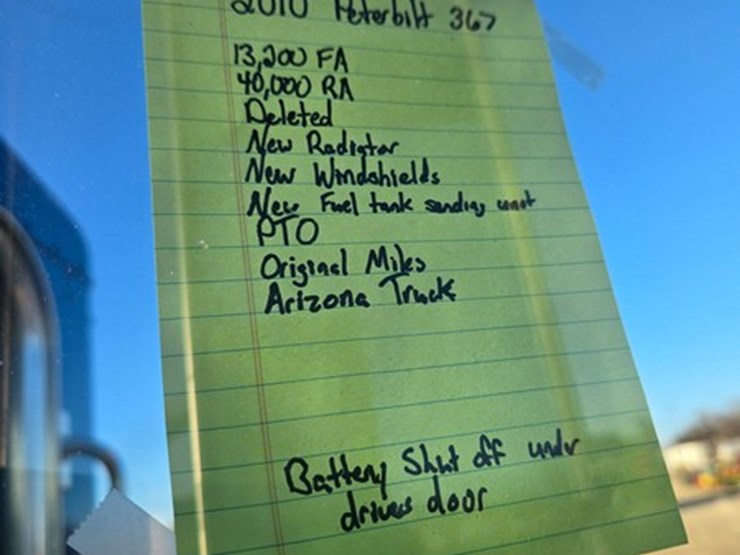 2010 Peterbilt 367
13,200 FA
40,000 RA
Deleted
New Radiator
New Windshields
New Fuel tank sending unit
PTO
Original Miles
Arizona Truck
Battery Shut off under
drivers door